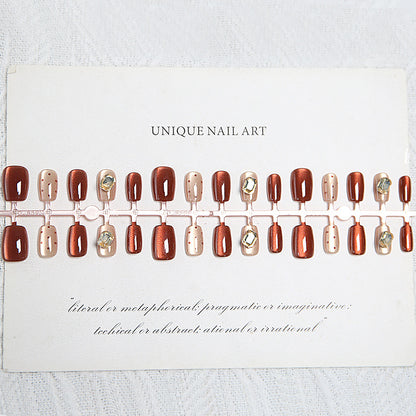 UNIQUE NAIL ART
"literal or metapherical; pragmatic or imaginative;
techical or abstract; ational or irrational"